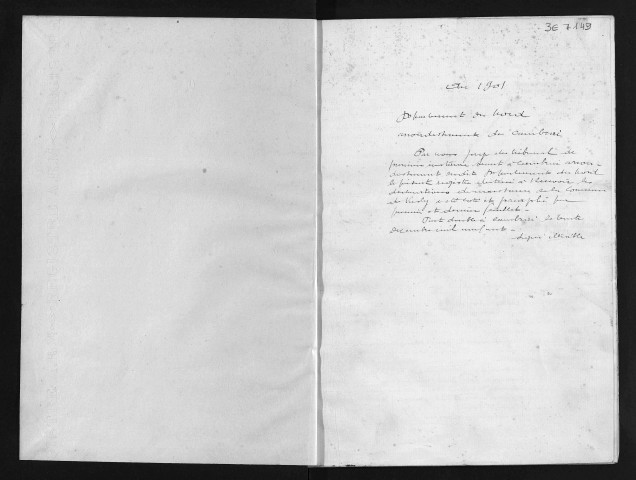 3E 7.148
An 1901
Département du Nord
arrondissement de Cambrai
Par nous juge du tribunal de
première instance séant à Cambrai arron-
dissement dudit Département du Nord
le présent registre destiné à recevoir les
déclarations de naissances de la commune
de a été coté et paraphé par
premier et dernier feuillet.
Fait double à Cambrai le trente
décembre mil neuf cent.
signé